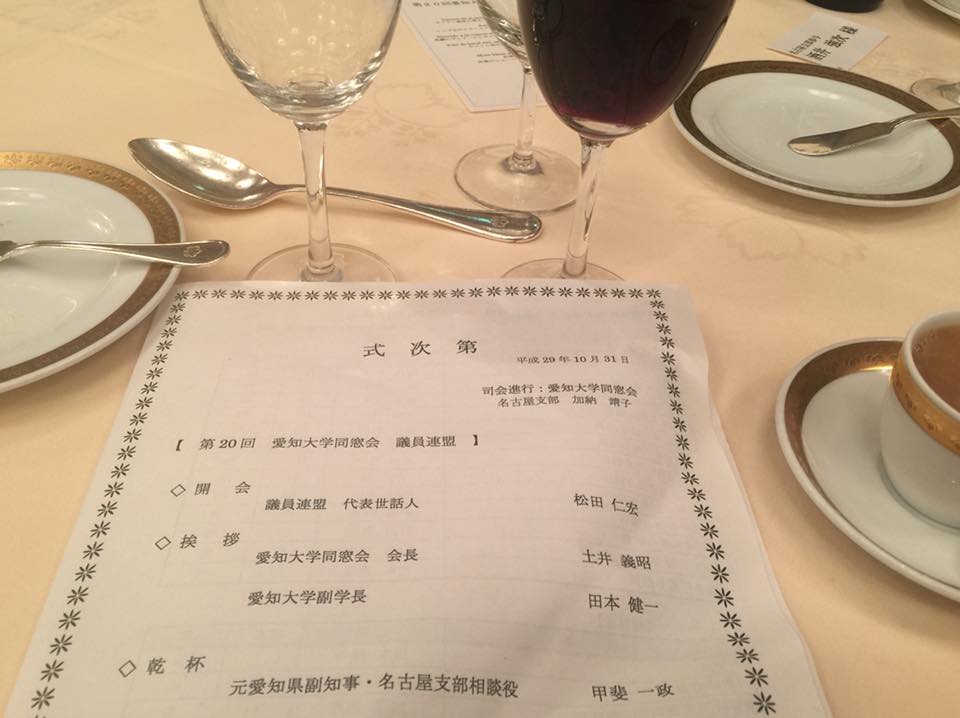 式 次 第
平成29年10月31日
司会進行：愛知大学同窓会
名古屋支部 加納 靖子
【 第20回 愛知大学同窓会 議員連盟 】
◇ 開 会
議員連盟 代表世話人 松田 仁宏
◇ 挨 拶
愛知大学同窓会 会長 土井 義昭
愛知大学副学長 田本 健一
◇ 乾 杯
元愛知県副知事・名古屋支部相談役 甲斐 一政